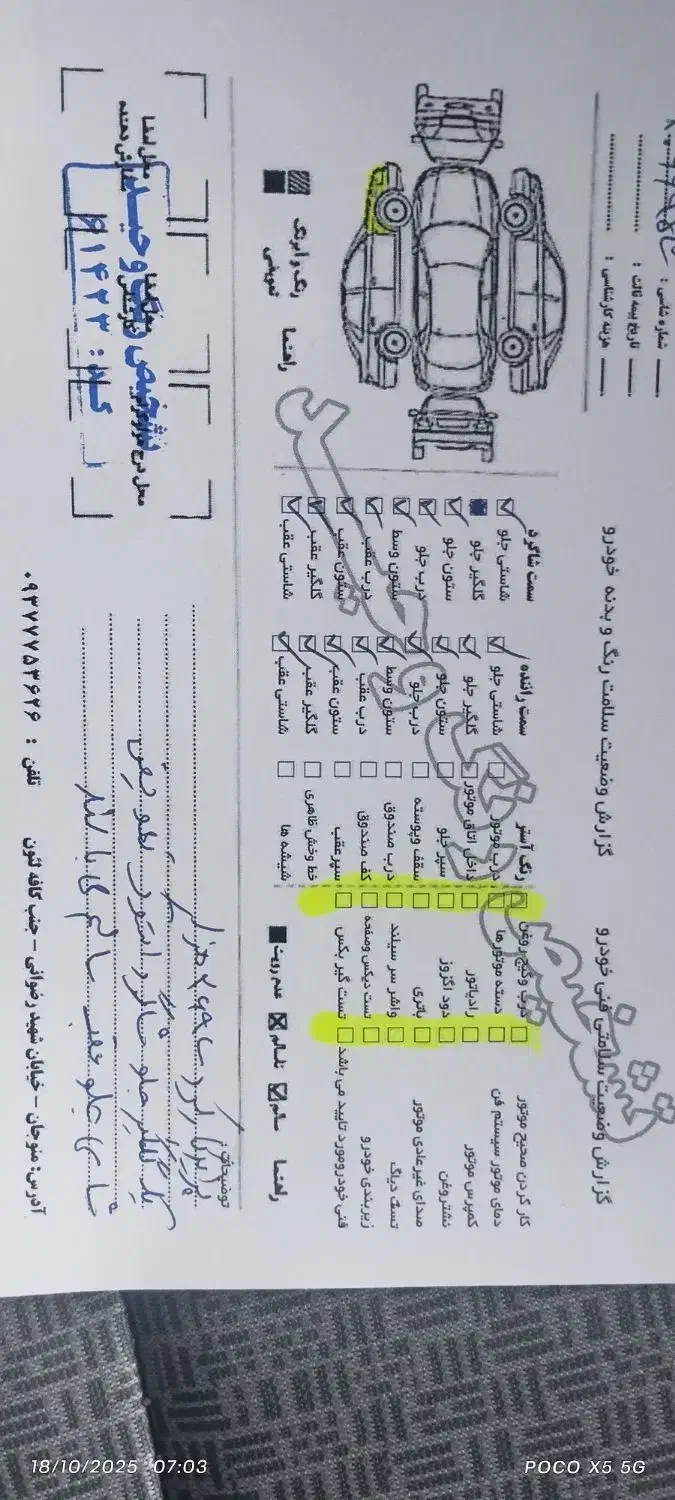 شماره شاسی :
تاریخ بیمه ثالث :
هزینه کارشناسی :
گزارش وضعیت سلامت رنگ و بدنه خودرو
گزارش وضعیت سلامتی فنی خودرو
راهنما
رنگ و ابرنگ
تعویض
سمت شاگرد
شاستی جلو
گلگیر جلو
ستون جلو
درب جلو
ستون وسط
درب عقب
ستون عقب
گلگیر عقب
شاستی عقب
سمت راننده
شاستی جلو
گلگیر جلو
ستون جلو
درب جلو
ستون وسط
درب عقب
ستون عقب
گلگیر عقب
شاستی عقب
رنگ آستر
درب موتور
داخل اتاق موتور
سپر جلو
سقف وپوسته
درب صندوق
کف صندوق
سپر عقب
خط وخش ظاهری
شیشه ها
درب وگیج روغن
دسته موتورها
رادیاتور
دود اگزوز
باتری
واشر سر سیلندر
تست دیکس وصفحه
تست گیر بکس
کار کردن صحیح موتور
دمای موتور سیستم فن
کمپرس موتور
نشتر وغن
صدای غیرعادی موتور
تست دیاگ
زیربندی خودرو
فنی خودرومورد تایید می باشد
راهنما
سالم
ناسالم
عدم رویت
توضیحات :
گلگیر جلو شاگرد
محل امضا
محل درج
کد : ۹۱۴۲۳
آدرس: منوجان – خیابان شهید رضوانی – جنب کافه لئون
تلفن : ۰۹۳۷۷۷۵۳۶۲۶
تشخیص رنگ وحید
18/10/2025 07:03
POCO X5 5G